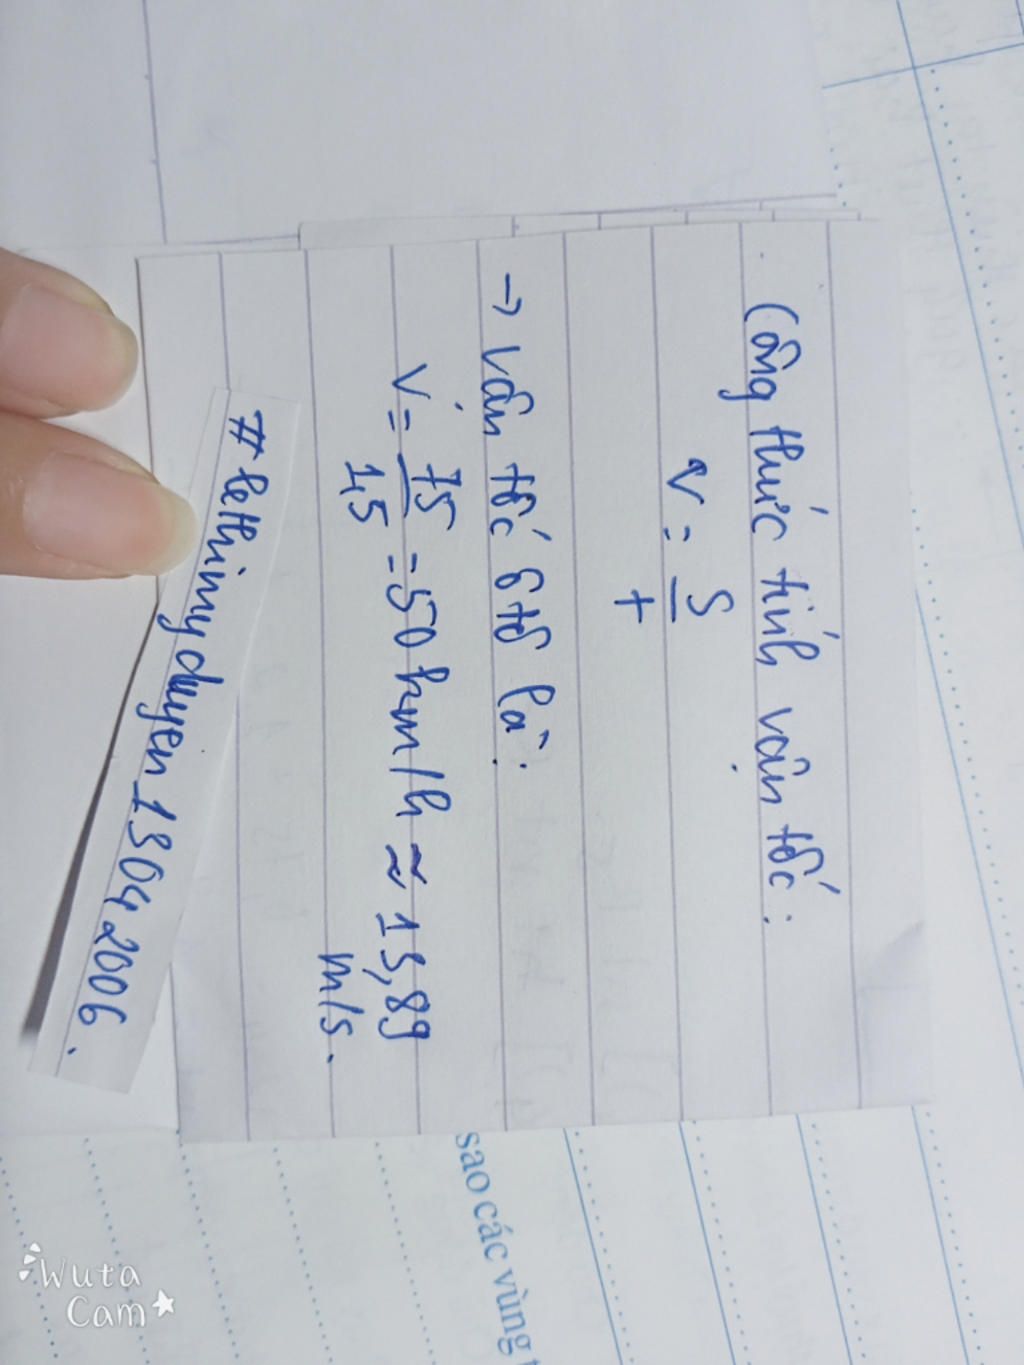 Công thức tính vận tốc:
v = S
t
→ Vận tốc ô tô là:
V = 75
1,5
= 50 km/h ≈ 13,89
m/s.
#lethimyduyen_13042006.
sao các vùng t
Wuta
Cam